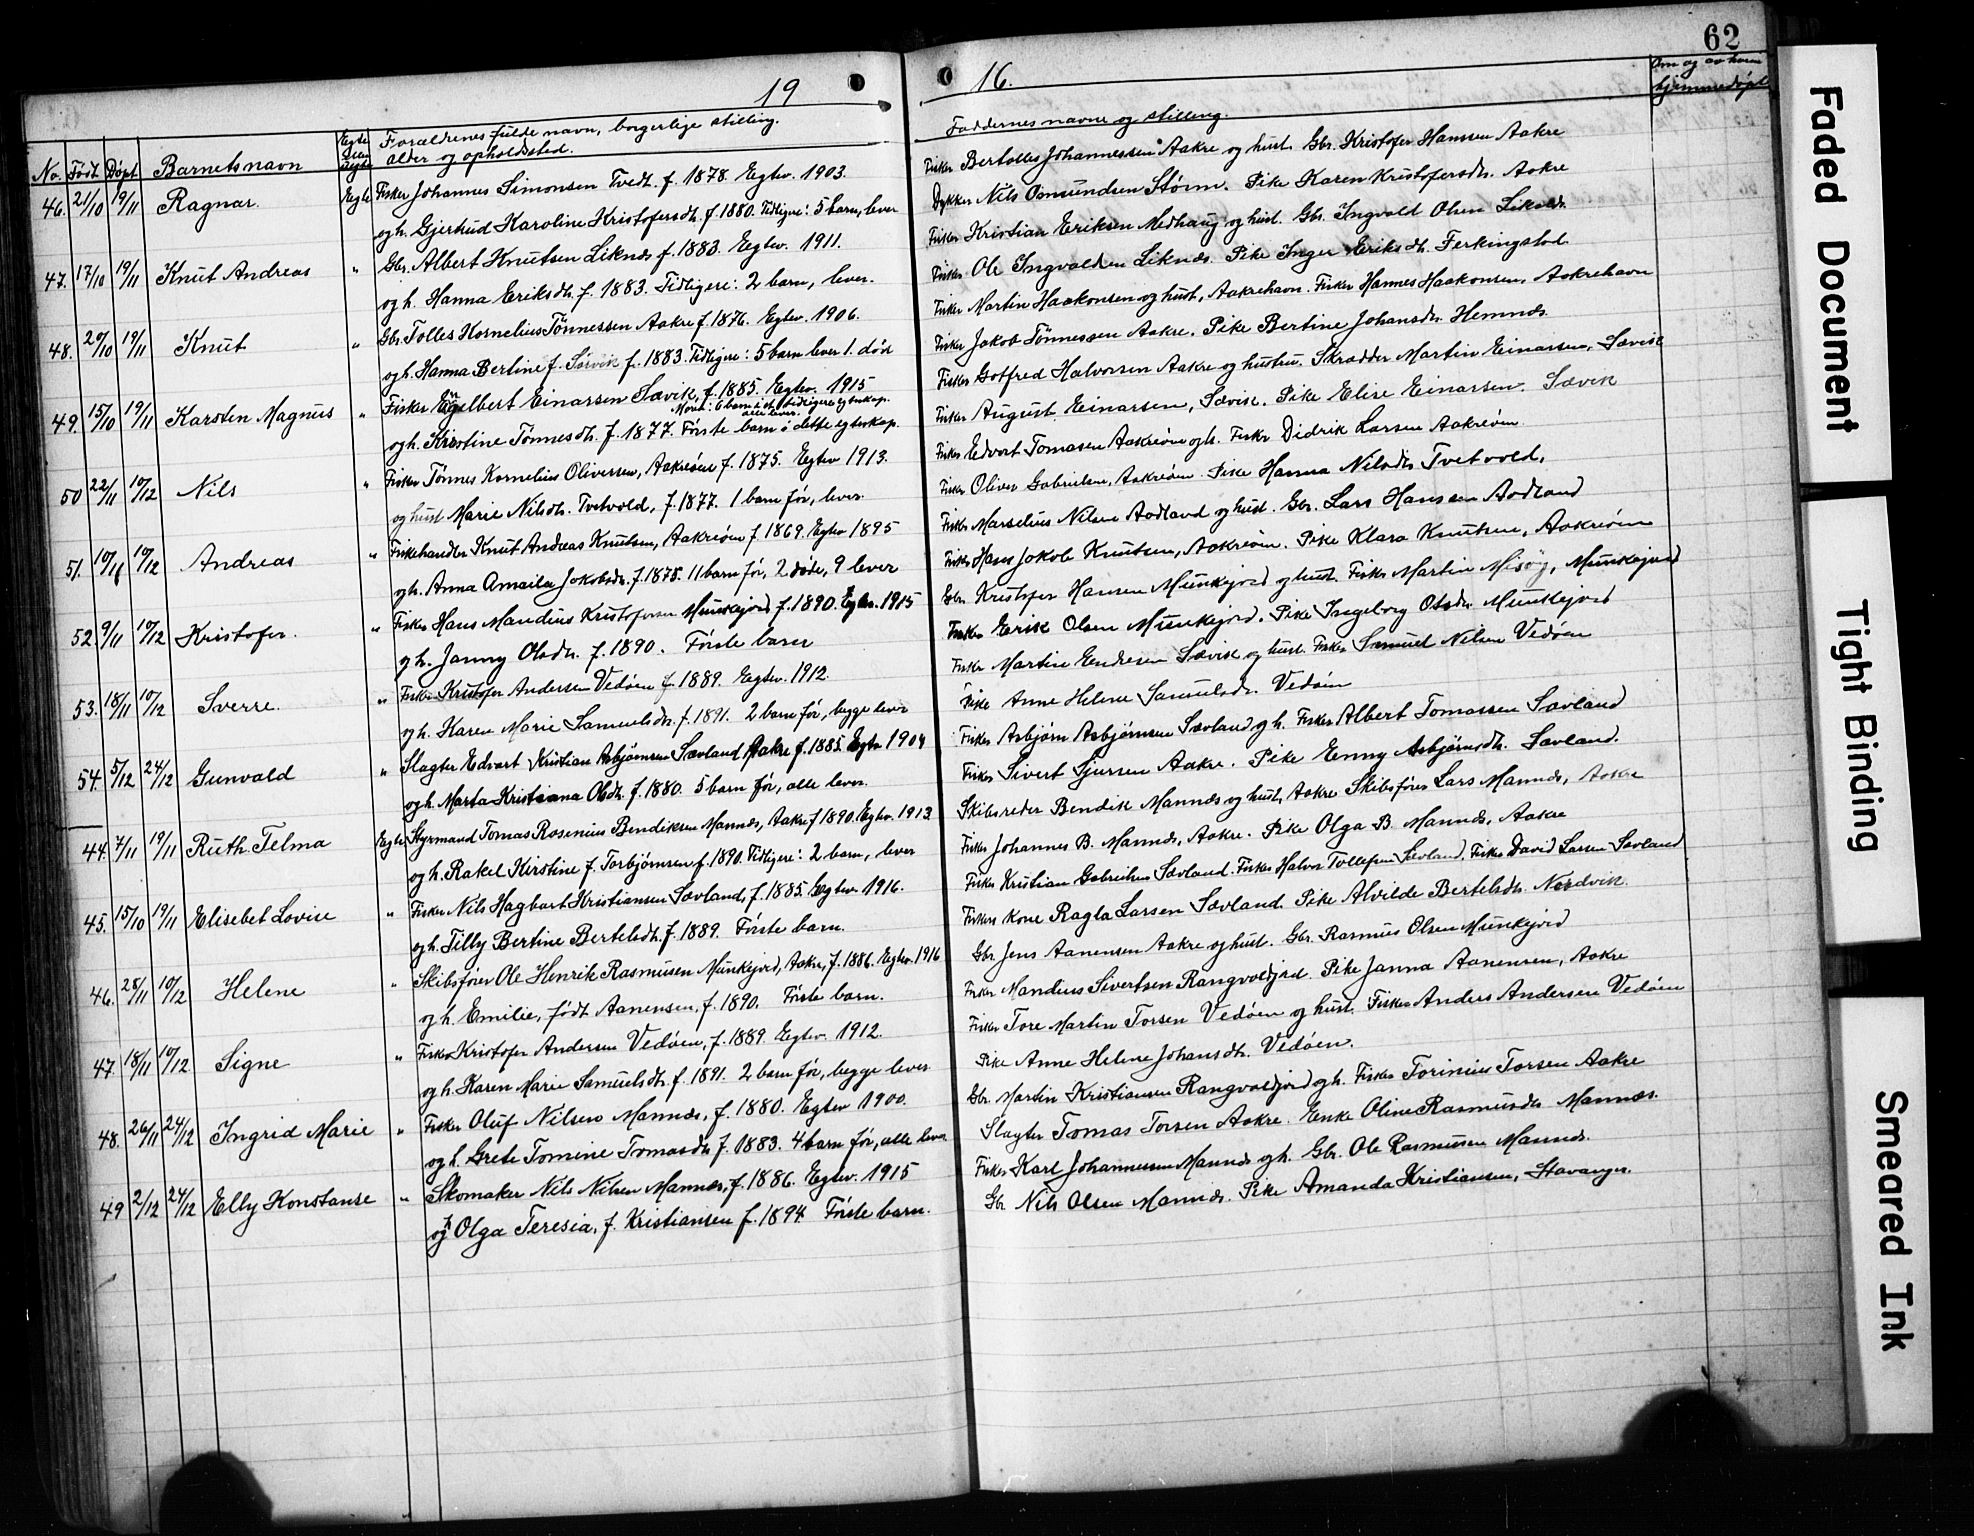 62
19
16.
No. Født Døpt Barnets navn Egte eller uegte Forældrenes fulde navn, borgerlige stilling, alder og opholdssted.
Faddernes navne og stilling.
Om og av hvem hjemmedøpt
46. 21/10 19/11 Ragnar. Egte Fisker Johannes Simonsen Tvedt. f. 1878. Egtev. 1903.
og h. Gjertrud Karoline Kristofersdtr. f. 1880. Tidligere: 5 barn, lever
47. 17/10 19/11 Knut Andreas " Gbr. Albert Knutsen Liknes f. 1883. Egtev. 1911.
og h. Hanna Eriksdtr. f. 1883. Tidligere: 2 barn, lever.
48. 20/10 19/11 Knut " Gbr. Tolles Kornelius Tønnessen Aakre f. 1876. Egtev. 1906.
og h. Hanna Bertine f. Sørvik f. 1883. Tidligere: 5 barn lever 1. død
49. 15/10 19/11 Karsten Magnus " Fisker Engelbert Einarsen Sævik, f. 1885. Egtev. 1915
Moren: 6 barn i et tidligere egteskap. alle lever.
og h. Kristine Tønnesdtr. f. 1877. Første barn i dette egteskap.
50 22/11 10/12 Nils " Fisker Tønnes Kornelius Oliversen, Aakreøen f. 1875. Egtev 1913.
og hust Marie Nilsdtr. Tvetvold, f. 1877. 1 barn før, lever.
51. 10/11 10/12 Andreas " Fiskehandler Knut Andreas Knutsen, Aakreøen f. 1869. Egtev 1895
og h. Anna Amaila Jakobsdtr. f. 1875. 11 barn før, 2 døde, 9 lever
52 9/11 10/12 Kristofer. " Fisker Hans Mandius Kristofersen Munkejord f. 1890. Egtev. 1915
og h. Janny Olsdtr. f. 1890. Første barn
53. 18/11 10/12 Sverre. " Fisker Kristofer Andersen Vedøen f. 1889. Egtev. 1912.
og h. Karen Marie Samuelsdtr. f. 1891. 2 barn før, begge lever
54. 5/12 24/12 Gunvald " Slagter Edvart Kristian Asbjørnsen Sævland, Aakre f. 1885. Egtev 1904
og h. Marta Kristiana Olsdtr. f. 1880. 5 barn før, alle lever.
44. 7/11 19/11 Ruth Telma Egte Styrmand Tomas Rosenius Bendiksen Mannes, Aakre f 1890. Egtev. 1913
og h. Rakel Kirstine f. Torbjørnsen f. 1890. Tidligere: 2 barn, lever
45. 15/10 19/11 Elisebet Lovise " Fisker Nils Hagbart Kristiansen Sævland, f. 1885. Egtev. 1916.
og h. Tilly Bertine Bertelsdtr. f. 1889. Første barn.
46. 25/11 10/12 Helene " Skibsfører Ole Henrik Rasmusen Munkejord, Aakre, f. 1886. Egtev. 1916
og h. Emilie, født Aanensen, f. 1890. Første barn.
47. 18/11 10/12 Signe " Fisker Kristofer Andersen Vedøen, f. 1889. Egtev. 1912.
og h. Karen Marie Samuelsdtr. f. 1891. 2 barn før, begge lever
48. 26/11 24/12 Ingrid Marie " Fisker Oluf Nilsen Mannes, f. 1880. Egtev 1900.
og h. Grete Tomine Tomasdtr f. 1883. 4 barn før, alle lever
49 2/12 24/12 Elly Konstanse " Skomaker Nils Nilsen Mannes, f. 1886. Egtev. 1915
og h Olga Teresia, f. Kristiansen f. 1894 Første barn.
Fisker Bertolles Johannessen Aakre og hust. Gbr. Kristofer Hanssen Aakre
Dykker Nils Osmundsen Storm. Pike Karen Kristofersdtr. Aakre
Fisker Kristian Eriksen Medhaug og hust. Gbr. Ingvald Olsen Liknes.
Fisker Ole Ingvaldsen Liknes. Pike Inger Eriksdtr. Ferkingstad.
Fisker Martin Haakonsen og hust, Aakrehavn. Fisker Hannes Haakonsen, Aakrehavn
Fisker Jakob Tønnessen Aakre. Pike Bertine Johansdtr. Hemnes.
Fisker Gotfred Halvorsen Aakre og hustru. Skrædder Martin Einarsen, Sævik
Fisker August Einarsen, Sævik. Pike Elise Einarsen. Sævik
Fisker Edvart Tomasen Aakreøen og h. Fisker Didrik Larsen Aakreøen.
Fisker Oliver Gabrielsen, Aakreøen. Pike Hanna Nilsdtr Tvetvold,
Fisker Marselius Nilsen Aodland og hust. Gbr. Lars Hanssen Aodland
Fisker Hans Jakob Knutsen, Aakreøen. Pike Klara Knutsen, Aakreøen
Gbr. Kristofer Hansen Munkejord og hust. Fisker Martin Misøy, Munkejord
Fisker Erik Olsen Munkejord. Pike Ingeborg Olsdtr. Munkejord
Fisker Martin Endresen Sævik og hust. Fisker Samuel Nilsen Vedøen
Pike Anne Helene Samuelsdtr. Vedøen
Fisker Asbjørn Asbjørnsen Sævland og h. Fisker Albert Tomassen Sævland
Fisker Sivert Sjursen Aakre. Pike Enny Asbjørnsdtr. Sævland.
Skibsreder Bendik Mannes og hust, Aakre Skibsfører Lars Mannes, Aakre
Fisker Johannes B. Mannes, Aakre. Pike Olga B. Mannes, Aakre
Fisker Kristian Gabrielsen Sævland. Fisker Halvor Tollefsen Sævland. Fisker David Larsen Sævland
Fiskers kone Ragla Larsen Sævland. Pike Alvilde Bertelsdtr. Nordvik.
Gbr. Jens Aanensen Aakre og hust. Gbr. Rasmus Olsen Munkejord
Fisker Mandius Sivertsen Rangvaldjord. Pike Janna Aanensen, Aakre
Fisker Tore Martin Torsen Vedøen og hust. Fisker Anders Andersen Vedøen
Pike Anne Helene Johansdtr. Vedøen.
Gbr. Martin Kristiansen Rangvaldjord og h. Fisker Torinius Torsen Aakre
Slagter Tomas Torsen Aakre. Enke Oline Rasmusdtr Mannes.
Fisker Karl Johannessen Mannes og h. Gbr. Ole Rasmussen Mannes.
Gbr Nils Olsen Mannes. Pike Amanda Kristiansen, Stavanger.
Faded Document
Tight Binding
Smeared Ink